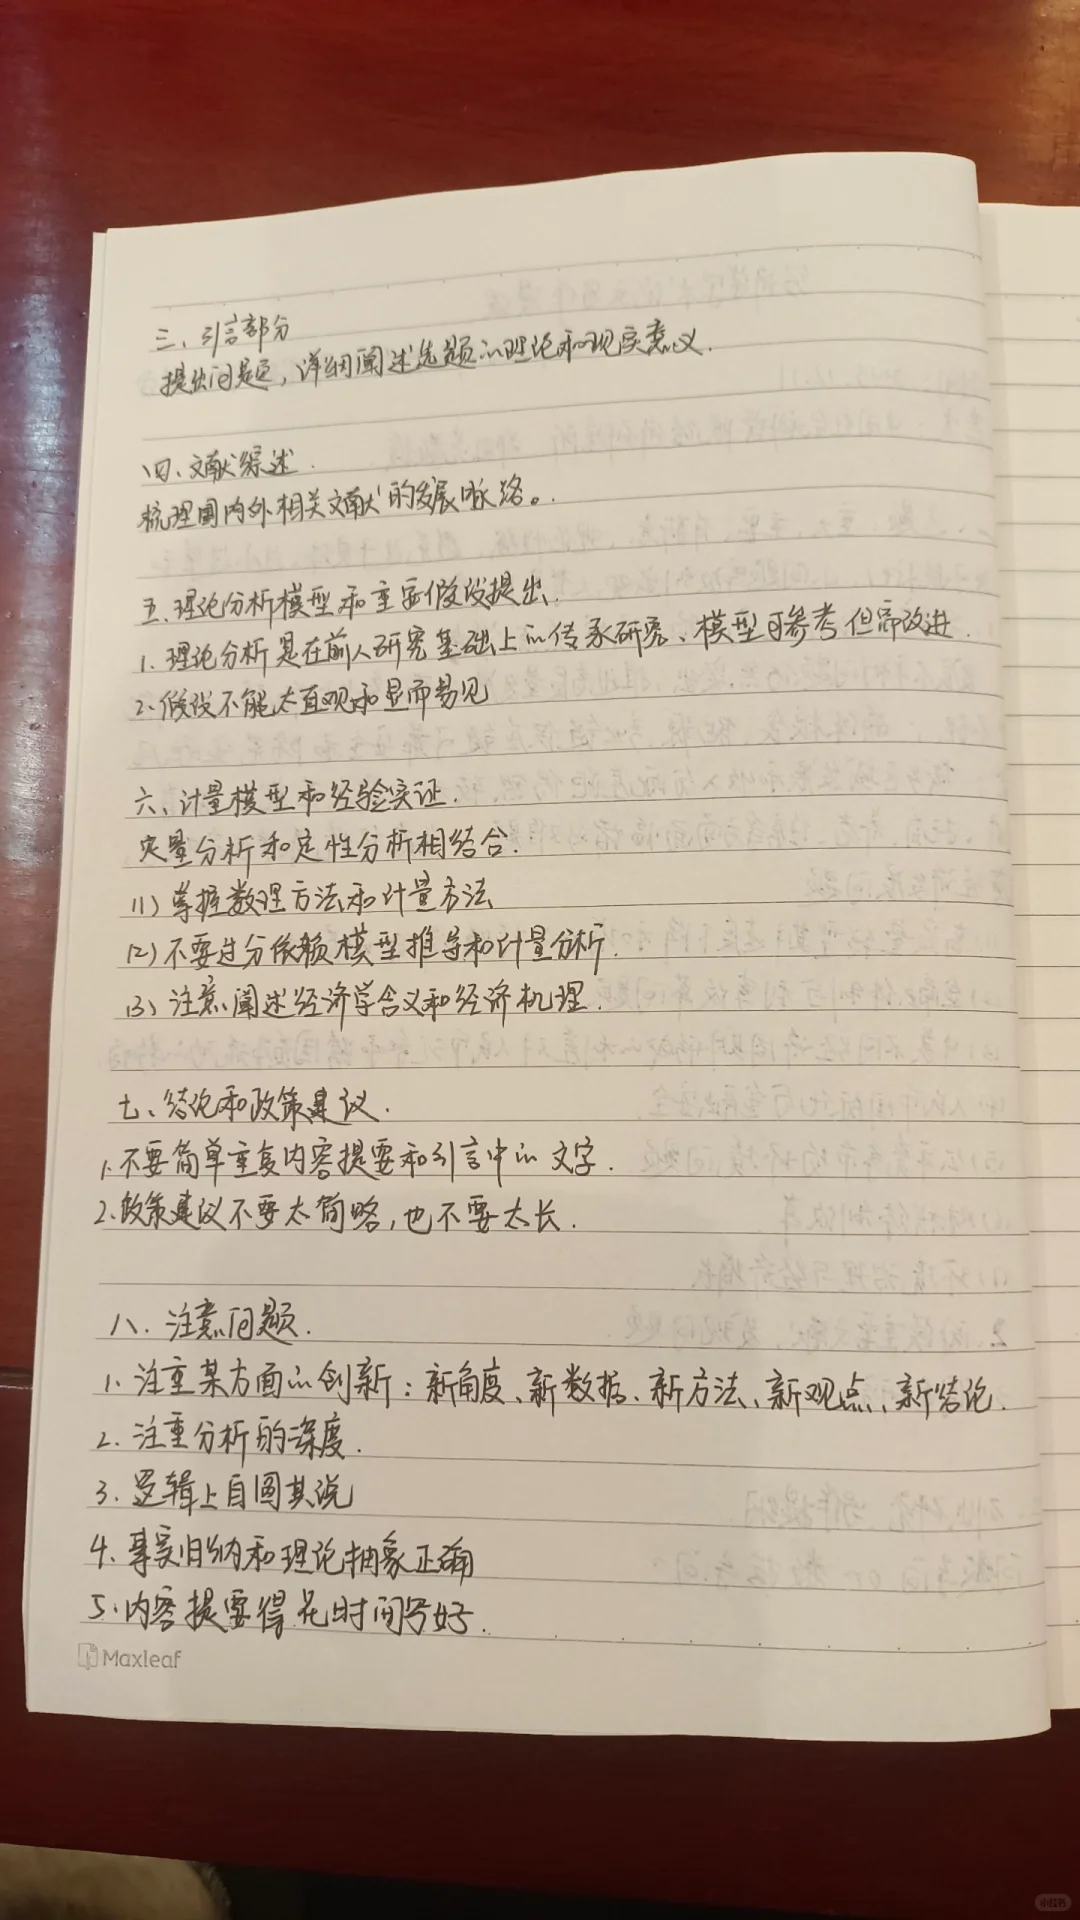 三、引言部分
提出问题，详细阐述选题的理论和现实意义.
四、文献综述.
梳理国内外相关文献的发展脉络。.
五.理论分析模型和重要假设提出.
1. 理论分析是在前人研究基础上的传承研究、模型可参考但需改进.
2. 假设不能太直观和显而易见
六、计量模型和经验实证.
定量分析和定性分析相结合.
(1) 掌握数理方法和计量方法
(2) 不要过分依赖模型推导和计量分析.
(3) 注意阐述经济学含义和经济机理.
七、结论和政策建议.
1.不要简单重复内容提要和引言中的文字.
2.政策建议不要太简略，也不要太长.
八.注意问题.
1. 注重某方面的创新：新角度、新数据、新方法、新观点、新结论.
2. 注重分析的深度.
3. 逻辑上自圆其说
4. 事实归纳和理论抽象正确
5.内容提要得花时间写好.
Maxleaf
小红书